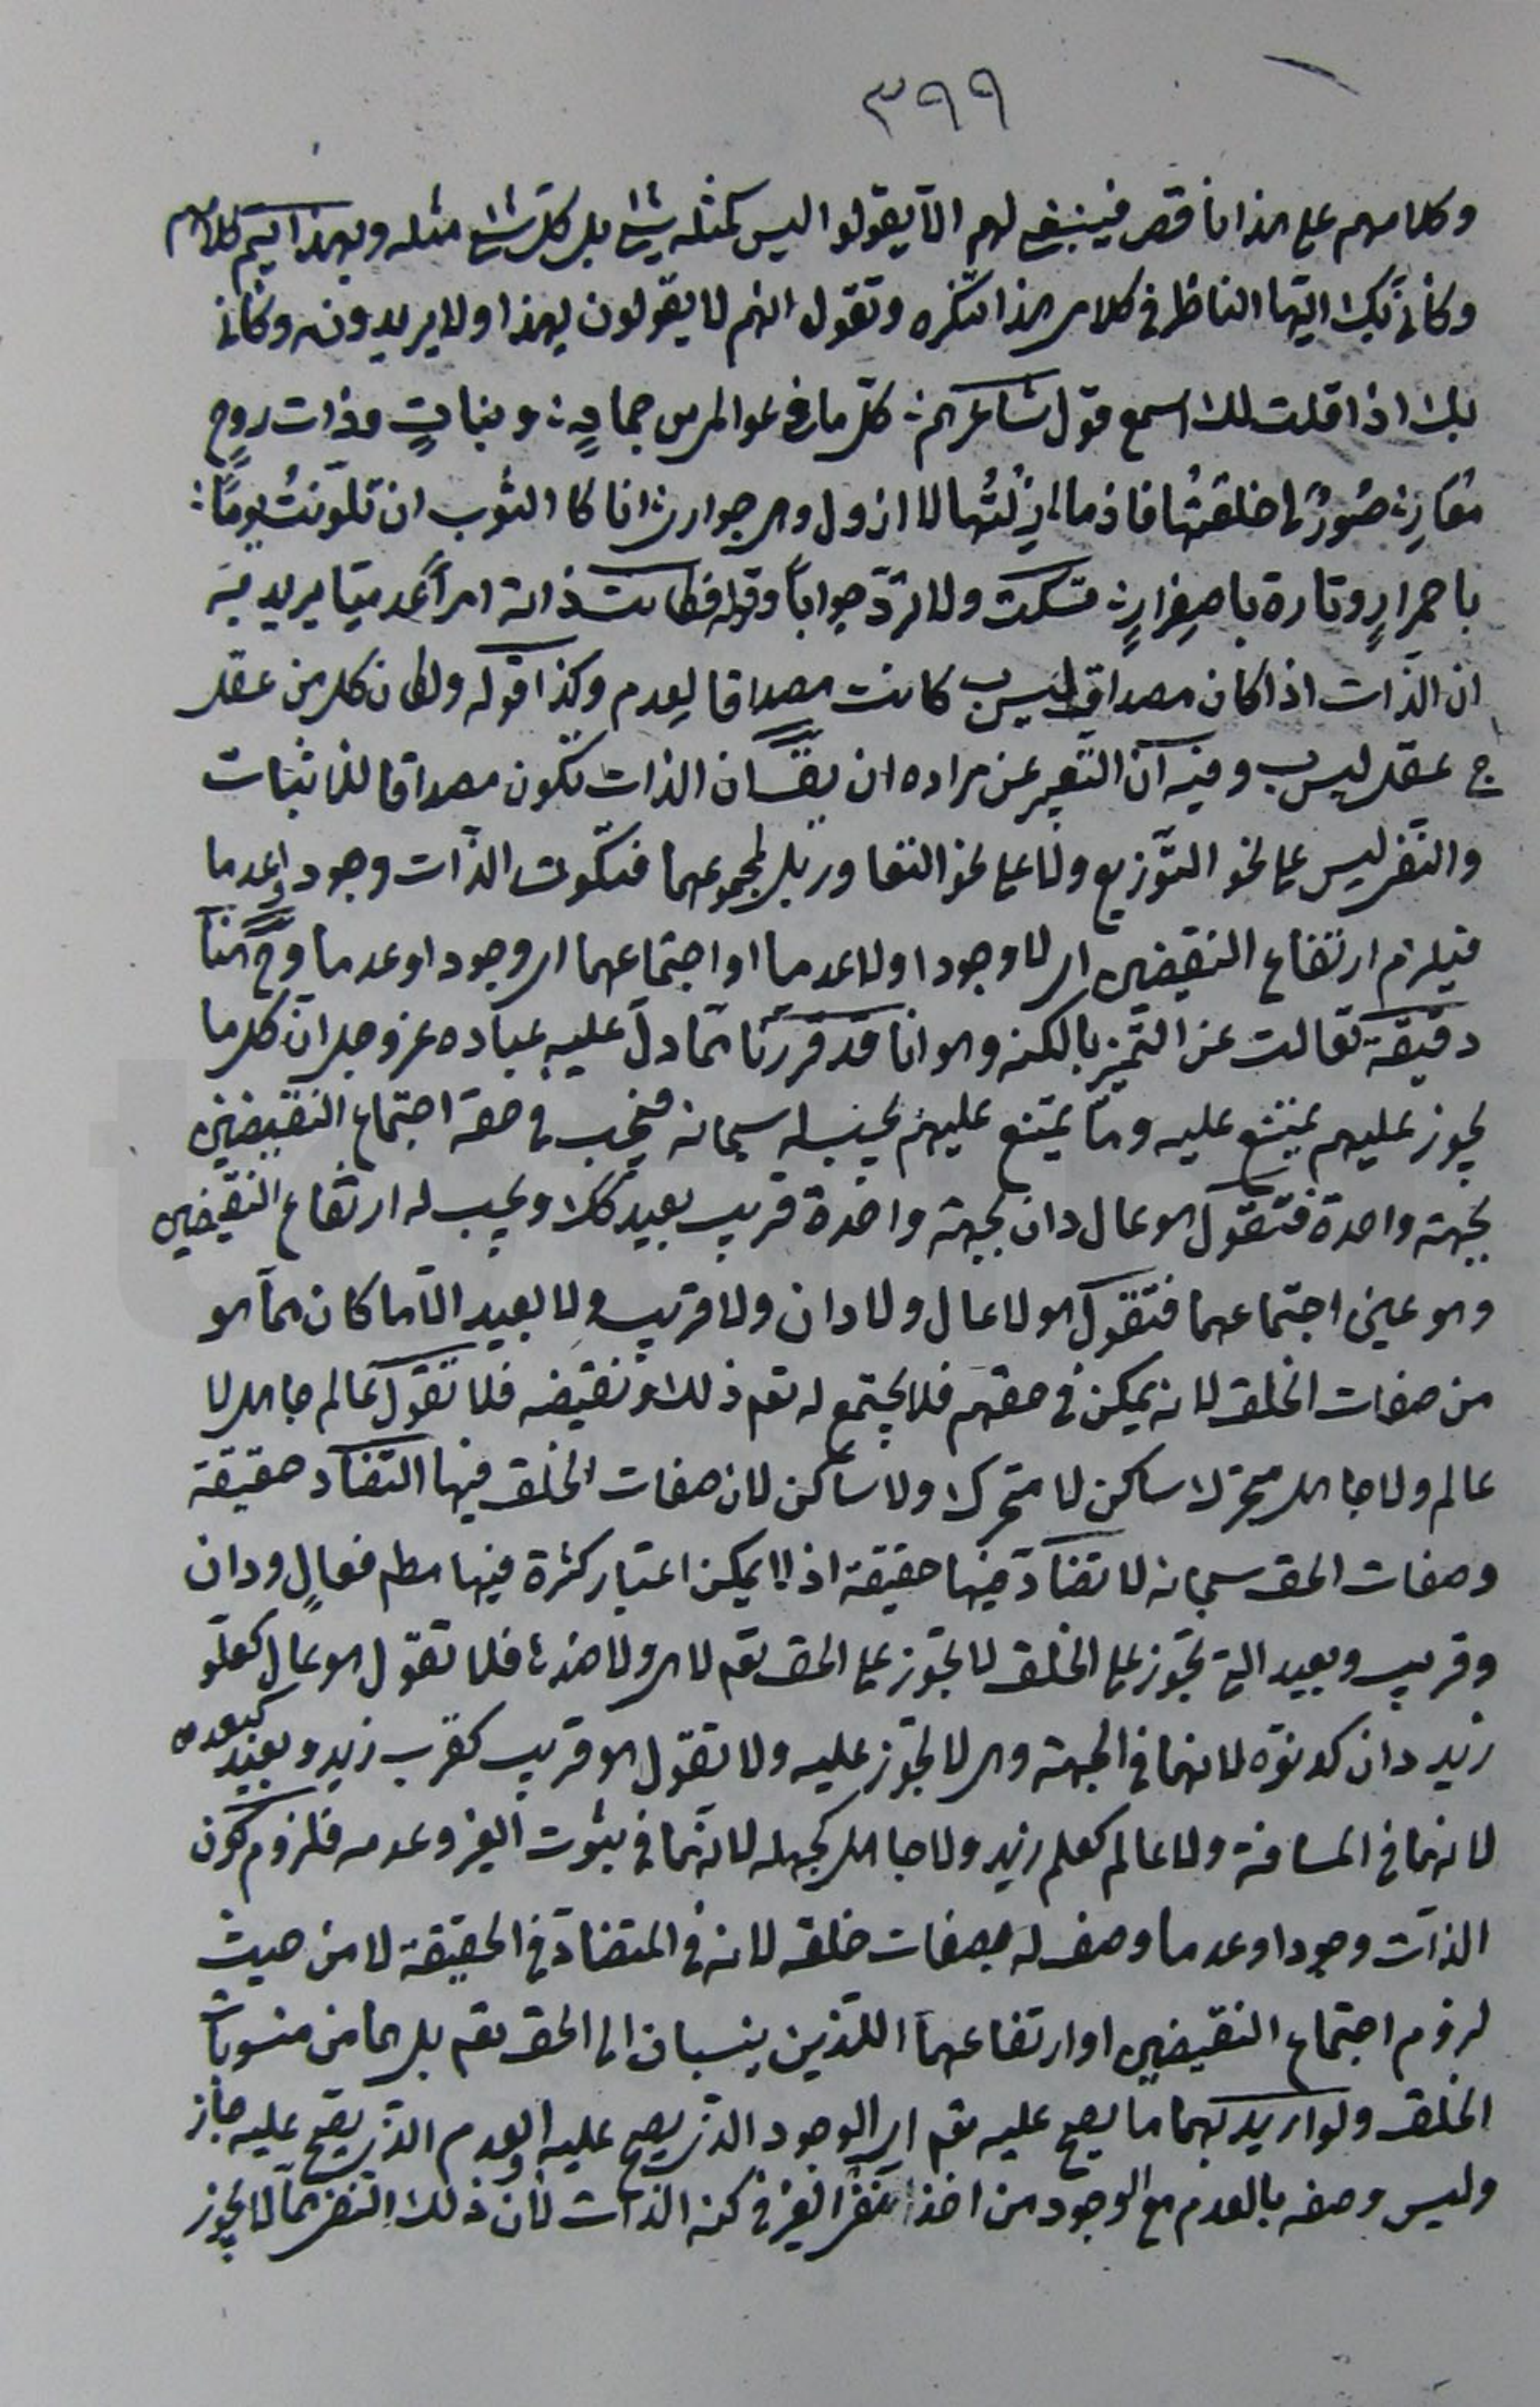 ٣٩٩
وكلامهم على هذا ناقص فينبغي لهم الا يقولوا ليس كمثله شئ بل كل شئ مثله وبهذا يتم كلامهم
وكأني بك ايها الناظر في كلامي هذا تنكره وتقول انهم لا يقولون بهذا ولا يريدونه وكأني
بك اذا قلت لك اسمع قول شاعرهم كل ما في عوالمي من جماد ونبات وذات روح
معار صور لي خلعتها فاذا ما ازلتها لا ازول وهي جوار انا كالثوب ان تلونت يوما
باحمرار وتارة باصفرار تسكت ولا ترد جوابا وقوله فكانت ذاته امرا عدميا يريد به
ان الذات اذا كان مصداق ليس ب كانت مصداقا لعدم وكذا قوله ولكان كل من عقل
ج عقل ليس ب وفيه ان التعبير عن مراده ان يقال ان الذات تكون مصداقا للاثبات
والنفي ليس على نحو التوزيع ولا على نحو التعاور بل لمجموعهما فتكون الذات وجودا وعدما
فيلزم ارتفاع النقيضين اي لا وجودا ولا عدما او اجتماعهما اي وجودا وعدما وح هنا
دقيقة تعالت عن التميز بالكنه وهو انا قد قررنا مما دل عليه عباده عز وجل ان كل ما
يجوز عليهم يمتنع عليه وما يمتنع عليهم يجب له سبحانه فيجب في حقه اجتماع النقيضين
بجهة واحدة فتقول هو عال دان بجهة واحدة قريب بعيد كذلك ويجب له ارتفاع النقيضين
وهو عين اجتماعهما فتقول هو لا عال ولا دان ولا قريب ولا بعيد الا ما كان مما هو
من صفات الخلق لانه يمكن في حقهم فلا يجتمع له تعم ذلك ونقيضه فلا تقول عالم جاهل لا
عالم ولا جاهل متحرك ساكن لا متحرك ولا ساكن لان صفات الخلق فيها التضاد حقيقة
وصفات الحق سبحانه لا تضاد فيها حقيقة اذ لا يمكن اعتبار كثرة فيها مطم فعال ودان
وقريب وبعيد التي تجوز على الخلق لا تجوز على الحق تعم لا هي ولا ضدها فلا تقول هو عال كعلو
زيد دان كدنوه لانهما في الجهة وهي لا تجوز عليه ولا تقول هو قريب كقرب زيد وبعيد كبعده
لانهما في المسافة ولا عالم كعلم زيد ولا جاهل كجهله لانهما في ثبوت الغير وعدمه فلزوم كون
الذات وجودا وعدما وصف له بصفات خلقه لانه في المتضادة في الحقيقة لا من حيث
لزوم اجتماع النقيضين او ارتفاعهما اللذين ينسبان الى الحق تعم بل هما من منسوبات
الخلق ولو اريد بهما ما يصح عليه تعم اي الوجود الذي يصح عليه والعدم الذي يصح عليه جاز
وليس وصفه بالعدم مع الوجود من اخذ نفي الغير في كنه الذات لان ذلك النفي مما لا يجوز